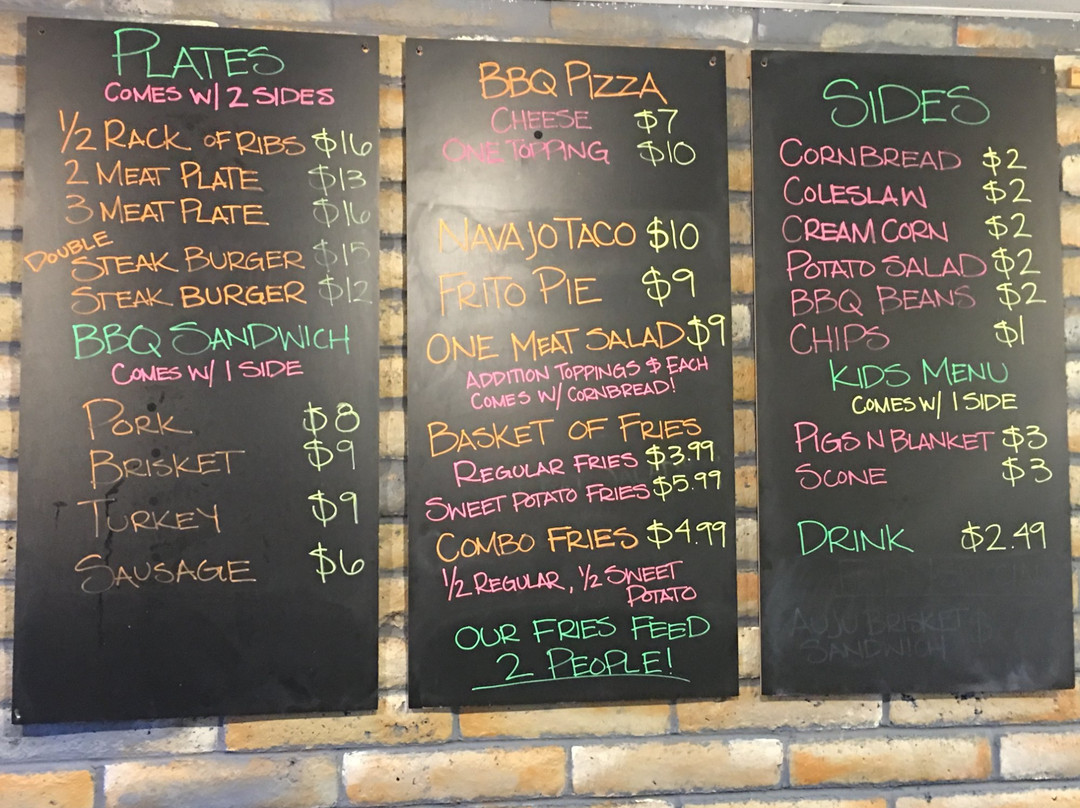 PLATES
COMES W/ 2 SIDES
1/2 RACK OF RIBS $16
2 MEAT PLATE $13
3 MEAT PLATE $16
DOUBLE STEAK BURGER $15
STEAK BURGER $12
BBQ SANDWICH
COMES W/ 1 SIDE
PORK $8
BRISKET $9
TURKEY $9
SAUSAGE $6
BBQ PIZZA
CHEESE $7
ONE TOPPING $10
NAVAJO TACO $10
FRITO PIE $9
ONE MEAT SALAD $9
ADDITION TOPPINGS $ EACH
COMES W/ CORNBREAD!
BASKET OF FRIES
REGULAR FRIES $3.99
SWEET POTATO FRIES $5.99
COMBO FRIES $4.99
1/2 REGULAR, 1/2 SWEET
POTATO
OUR FRIES FEED
2 PEOPLE!
SIDES
CORNBREAD $2
COLESLAW $2
CREAM CORN $2
POTATO SALAD $2
BBQ BEANS $2
CHIPS $1
KIDS MENU
COMES W/ 1 SIDE
PIGS N BLANKET $3
SCONE $3
DRINK $2.49
AUJU BRISKET $
SANDWICH